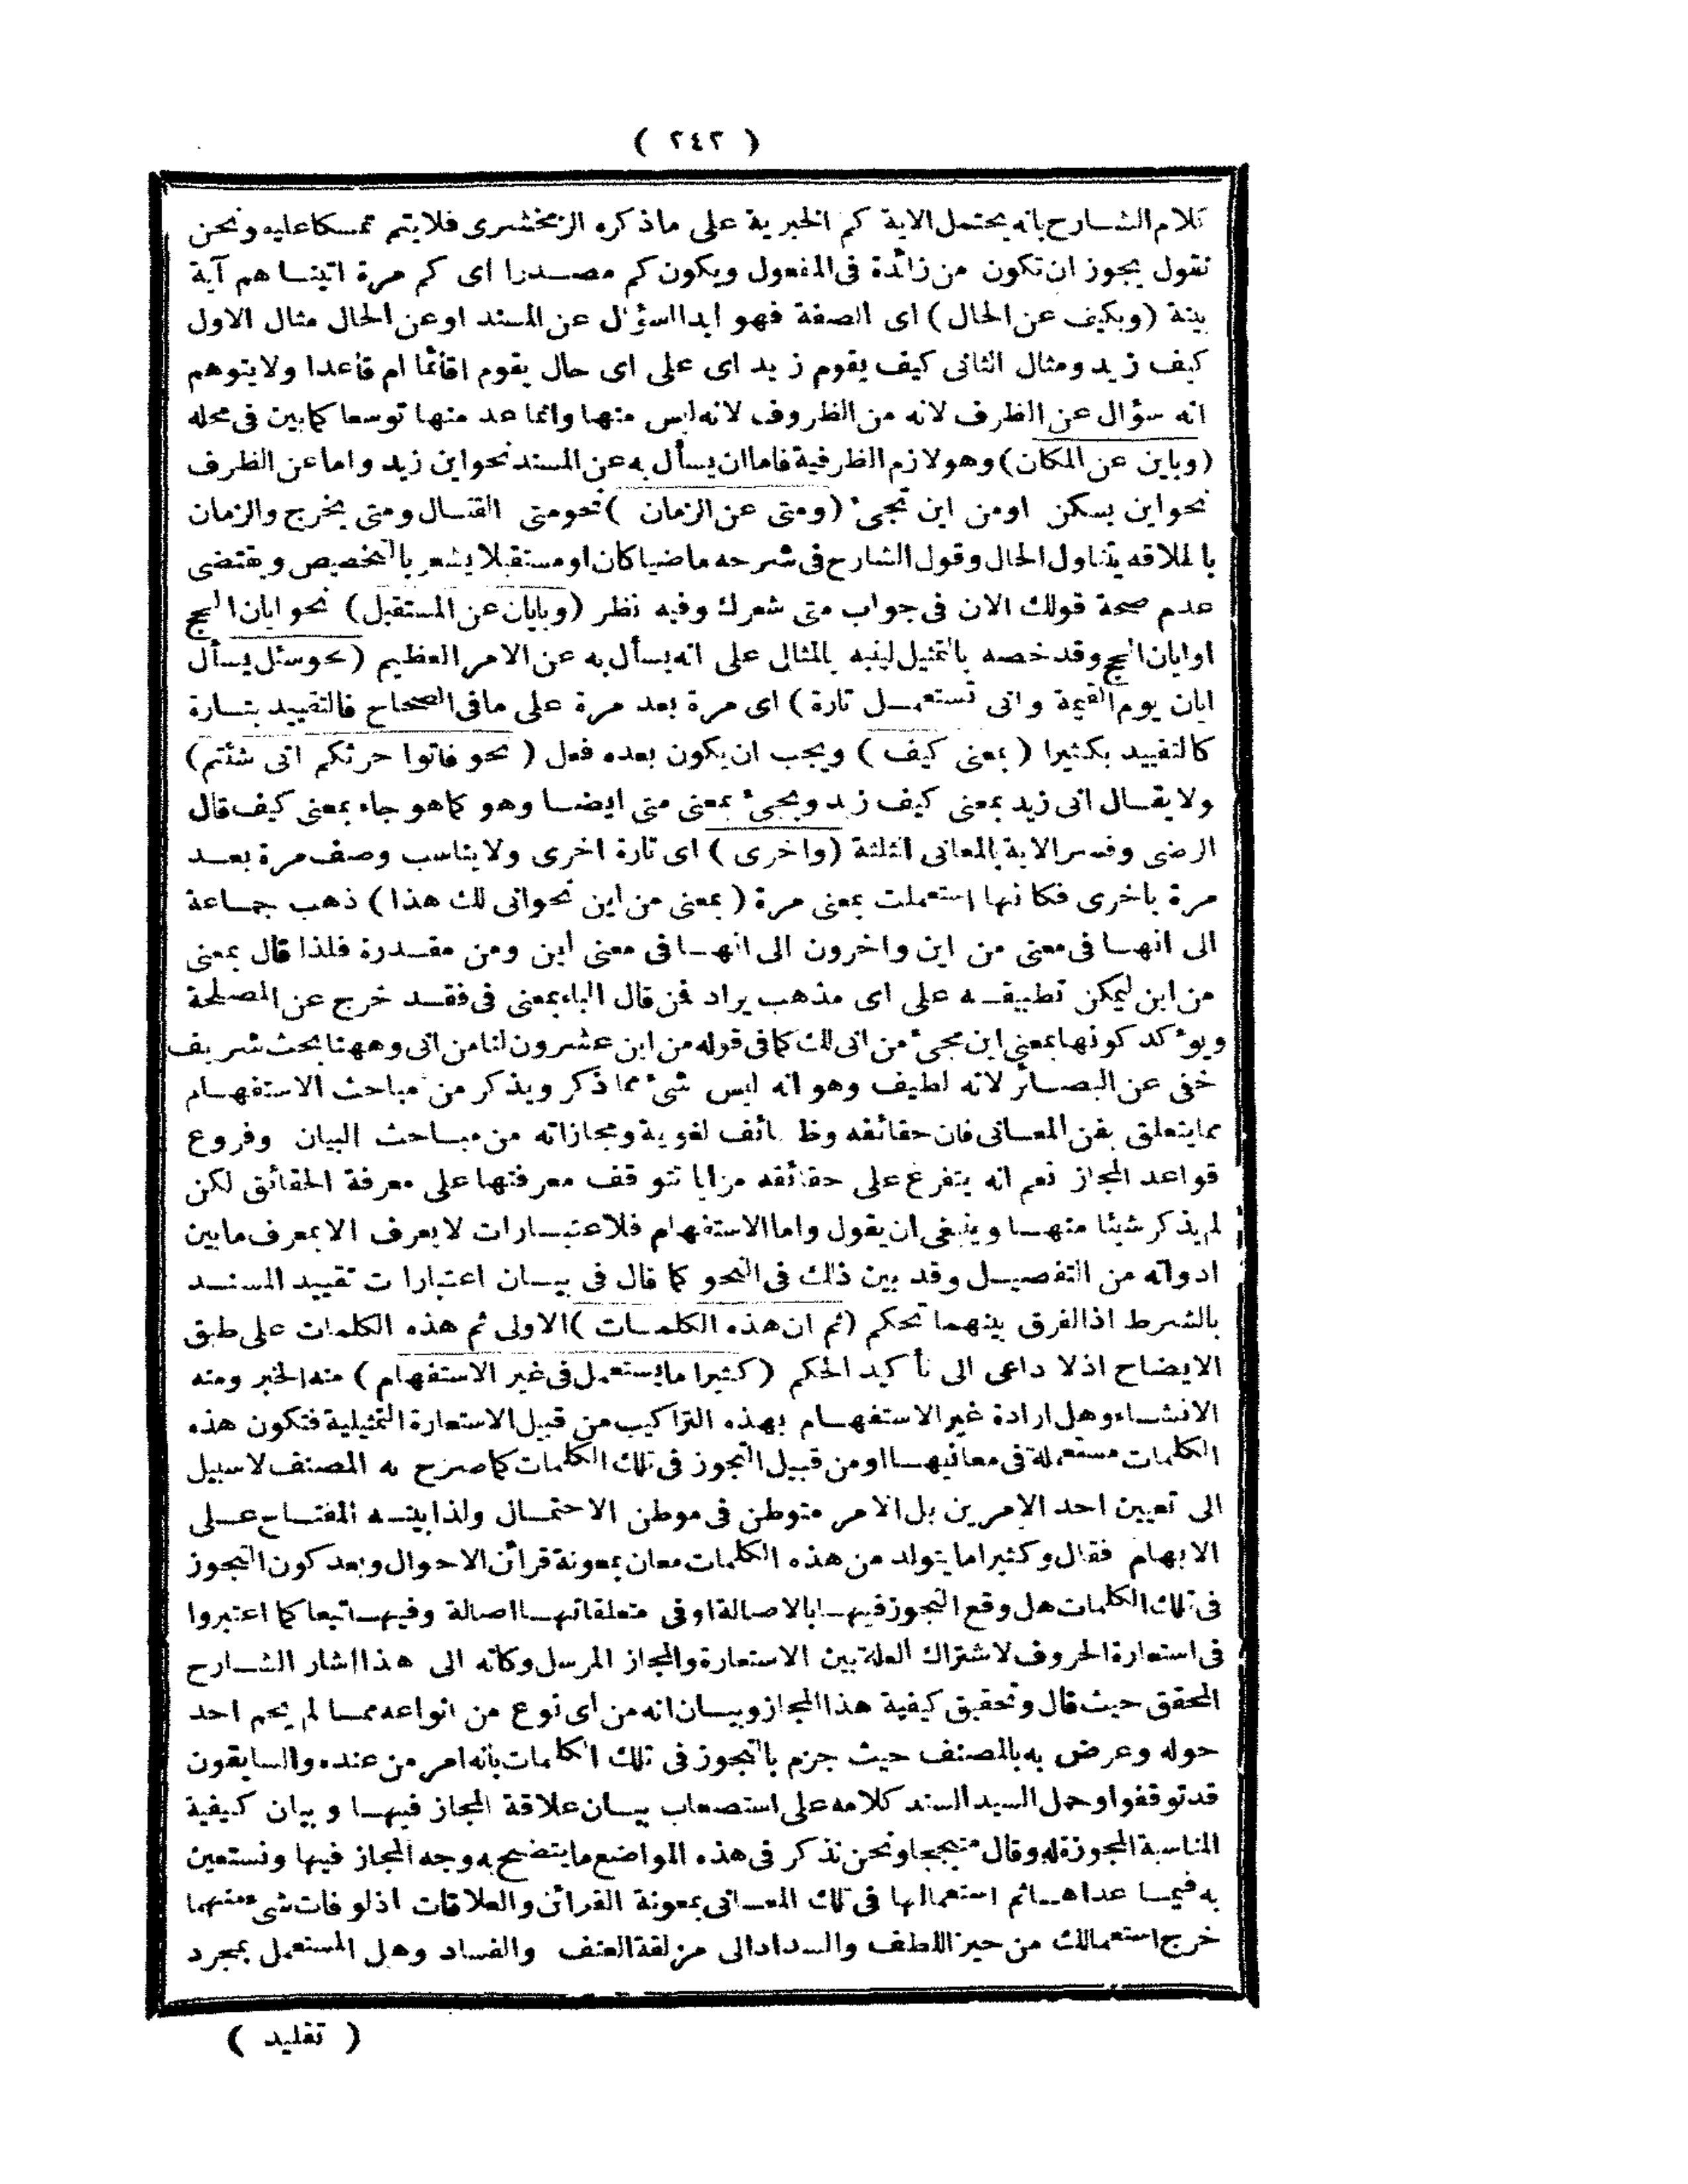 ( ٢٤٢ )
كلام الشارح بانه يحتمل الاية كم الخبرية على ماذكره الزمخشرى فلايتم تمسكا عليه ونحن
نقول يجوز ان تكون من زائدة فى المفعول ويكون كم مصدرا اى كم مرة اتيناهم آية
بينة (وبكيف عن الحال) اى الصفة فهو ابدا السؤال عن المسند او عن الحال مثال الاول
كيف زيد ومثال الثانى كيف يقوم زيد اى على اى حال يقوم اقائما ام قاعدا ولايتوهم
انه سؤال عن الظرف لانه من الظروف لانه ليس منها وانما عد منها توسعا كما بين فى محله
(وباين عن المكان) وهو لازم الظرفية فاما ان يسأل به عن المسند نحو اين زيد واما عن الظرف
نحو اين يسكن اومن اين تجئ (ومتى عن الزمان) نحو متى القتال ومتى يخرج والزمان
باطلاقه يتناول الحال وقول الشارح فى شرحه ماضيا كان او مستقبلا يشعر بالتخصيص ويقتضى
عدم صحة قولك الان فى جواب متى شعرك وفيه نظر (وبايان عن المستقبل) نحو ايان الحج
او ايان الحج وقد خصه بالتمثيل لينبه بالمثال على انه يسأل به عن الامر العظيم (نحو سئل يسأل
ايان يوم القيمة وانى تستعمل تارة) اى مرة بعد مرة على مافى الصحاح فالتقييد بتارة
كالتقييد بكثيرا (بمعنى كيف) ويجب ان يكون بعده فعل (نحو فاتوا حرثكم انى شئتم)
ولايقال انى زيد بمعنى كيف زيد ويجئ بمعنى متى ايضا وهو كما هو جاء بمعنى كيف قال
الرضى وفسر الاية بالمعانى الثلثة (واخرى) اى تارة اخرى ولايناسب وصف مرة بعد
مرة باخرى فكانها استعملت بمعنى مرة (بمعنى من اين نحو انى لك هذا) ذهب جماعة
الى انها فى معنى من اين واخرون الى انها فى معنى اين ومن مقدرة فلذا قال بمعنى
من اين ليمكن تطبيقه على اى مذهب يراد فمن قال الباء بمعنى فى فقد خرج عن المصلحة
ويؤكد كونها بمعنى اين مجئ من انى لك كما فى قوله من اين عشرون لنا من انى وههنا بحث شريف
خفى عن البصائر لانه لطيف وهو انه ليس شئ مما ذكر ويذكر من مباحث الاستفهام
مما يتعلق بفن المعانى فان حقائقه وظائف لغوية ومجازاته من مباحث البيان وفروع
قواعد المجاز نعم انه يتفرع على حقائقه مزايا تتوقف معرفتها على معرفة الحقائق لكن
لم يذكر شيئا منها وينبغى ان يقول واما الاستفهام فلاعتبارات لايعرف الا بمعرف مابين
ادواته من التفصيل وقد بين ذلك فى النحو كما قال فى بيان اعتبارات تقييد المسند
بالشرط اذ الفرق بينهما تحكم (ثم ان هذه الكلمات) الاولى ثم هذه الكلمات على طبق
الايضاح اذلا داعى الى تأكيد الحكم (كثيرا مايستعمل فى غير الاستفهام) منه الخبر ومنه
الانشاء وهل ارادة غير الاستفهام بهذه التراكيب من قبيل الاستعارة التمثيلية فتكون هذه
الكلمات مستعملة فى معانيها اومن قبيل التجوز فى تلك الكلمات كما صرح به المصنف لاسبيل
الى تعيين احد الامرين بل الامر متوطن فى موطن الاحتمال ولذا بينه المفتاح على
الابهام فقال وكثيرا ما يتولد من هذه الكلمات معان بمعونة قرائن الاحوال وبعد كون التجوز
فى تلك الكلمات هل وقع التجوز فيها بالاصالة اوفى متعلقاتها اصالة وفيها تبعا كما اعتبروا
فى استعارة الحروف لاشتراك العلة بين الاستعارة والمجاز المرسل وكانه الى هذا اشار الشارح
المحقق حيث قال وتحقيق كيفية هذا المجاز وبيان انه من اى نوع من انواعه مما لم يحم احد
حوله وعرض به بالمصنف حيث جزم بالتجوز فى تلك الكلمات بانه امر من عنده والسابقون
قد توقفوا وحمل السيد السند كلامه على استصعاب بيان علاقة المجاز فيها وبيان كيفية
المناسبة المجوزة له وقال متبجحا ونحن نذكر فى هذه المواضع مايتضح به وجه المجاز فيها ونستعين
به فيما عداها ثم استعمالها فى تلك المعانى بمعونة القرائن والعلاقات اذلو فات شئ منهما
خرج استعمالك من حيز اللطف والسداد الى مزلقة العنف والفساد وهل المستعمل بمجرد
( تقليد )